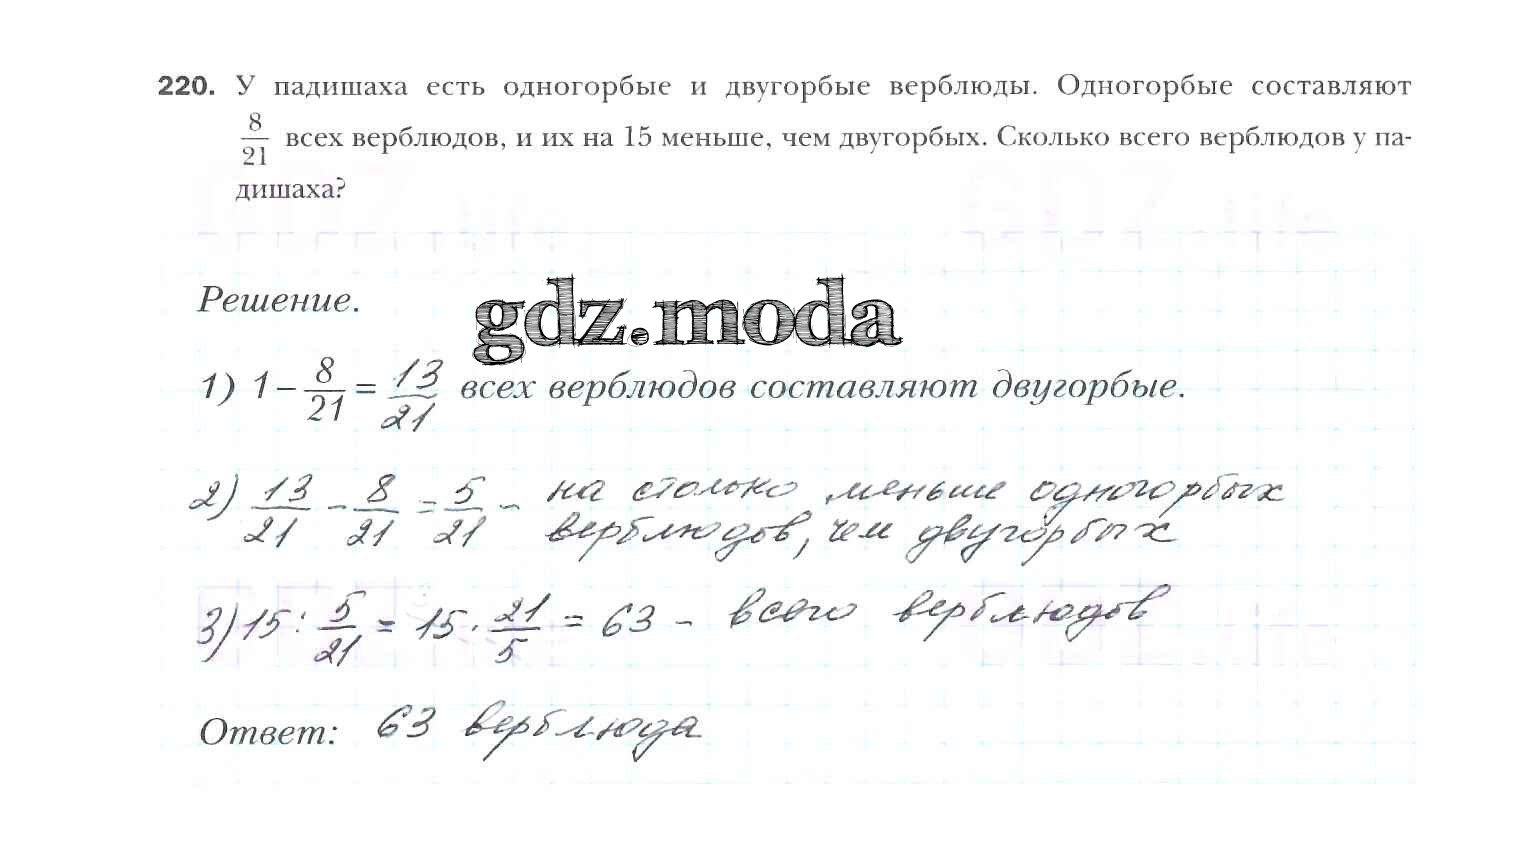 220. У падишаха есть одногорбые и двугорбые верблюды. Одногорбые составляют
8/21 всех верблюдов, и их на 15 меньше, чем двугорбых. Сколько всего верблюдов у па-
дишаха?
Решение.
gdz.moda
1) 1 – 8/21 = 13/21 всех верблюдов составляют двугорбые.
2) 13/21 – 8/21 = 5/21 – на столько меньше одногорбых
верблюдов, чем двугорбых
3) 15 : 5/21 = 15 · 21/5 = 63 – всего верблюдов
Ответ: 63 верблюда